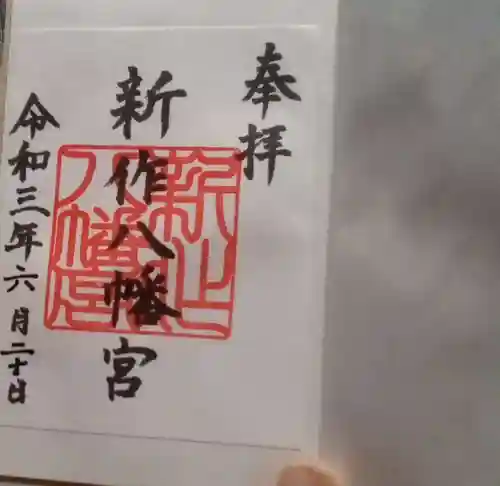 奉拝
新作八幡宮
令和三年六月二十日
新作
八幡宮